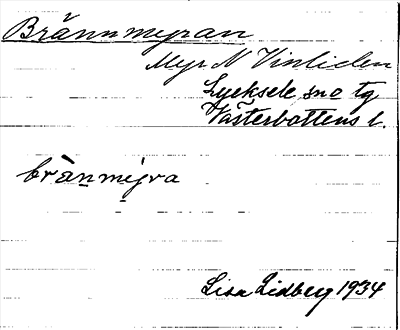 Brännmyran
Myr N Vinliden
Lycksele sno tg
Västerbottens l.
brànmýra
Lisa Lidberg 1934